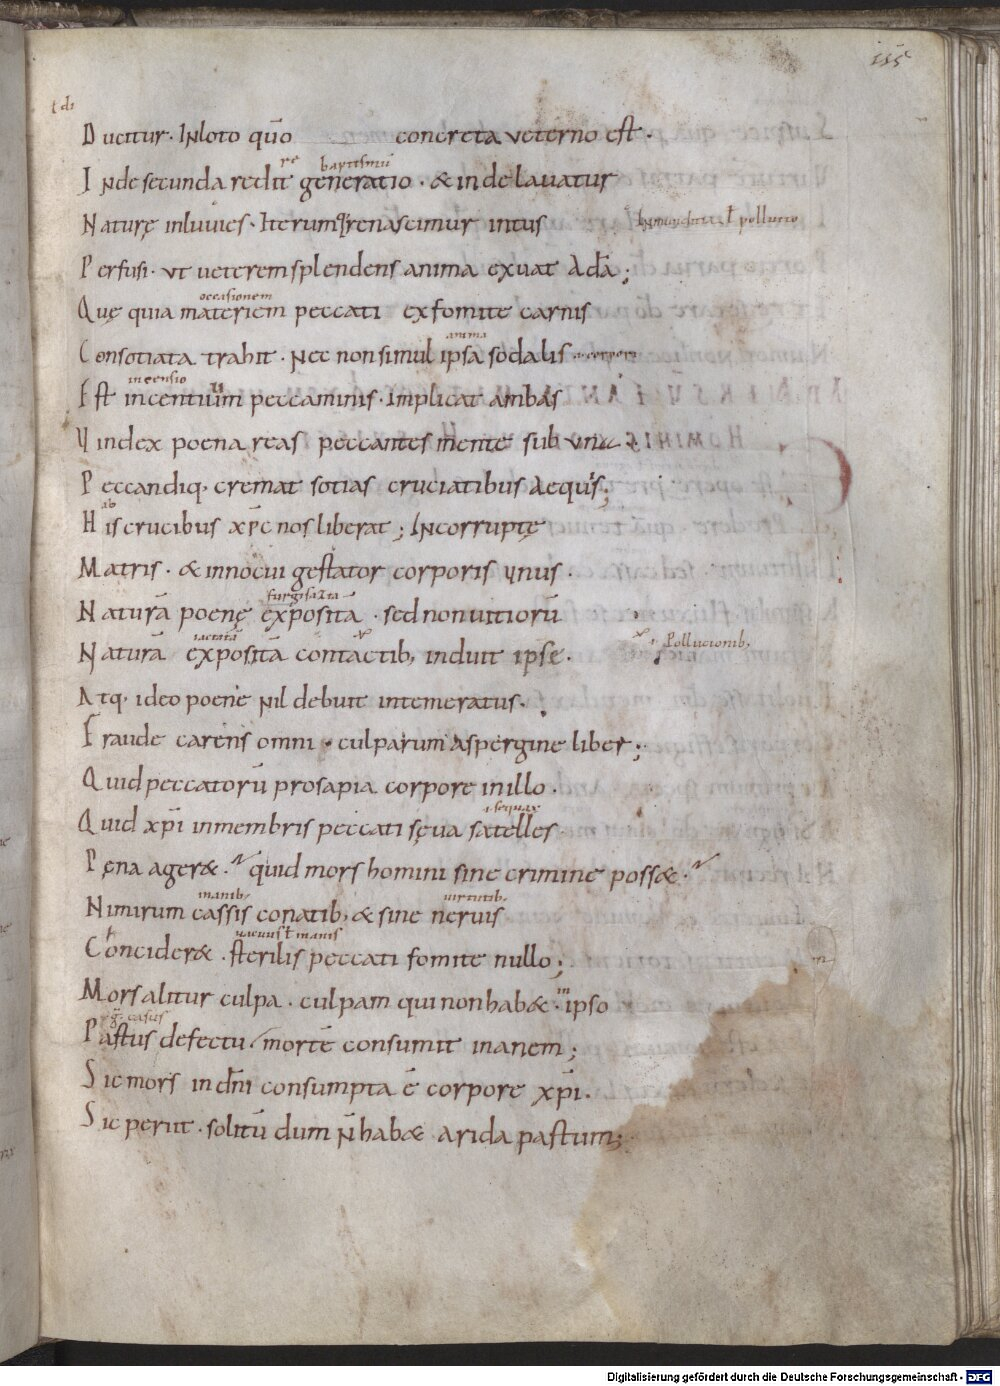 115
Ducitur · INloto quō concreta veterno est ·
baptismū
INde secunda redit generatio · & inde lauatur
Naturę inluuies · Iterumq; renascimur intus
ł pollutio
Perfusi · vt veterem splendens anima exuat Adā;
occasionem
Quę quia materiem peccati ex fomite carnis
anima
Consotiata trahit · Nec non simul ipsa sodalis
incensio
Est incentiuum peccaminis · Implicat ambas
Vindex poena reas peccantes mente sub una
Peccandiq; cremat sotias cruciatibus aequis;
ab
His crucibus xp̄c nos liberat; INcorruptę
Matris · & innocui gestator corporis unus ·
Naturā poenę expositā · sed non uitiorū
Pollucionib;
Naturā expositā contactib; induit ipse ·
Atq; ideo poene Nil debuit intemeratus ·
Fraude carens omni · culparum aspergine liber;
Quid peccatorū prosapia corpore in illo ·
ı sequax
Quid xp̄i in membris peccati sęua satelles ·
Pęna ager& · quid mors homini sine crimine poss& ·
inanib; uirtutib;
Nimirum cassis conatib; & sine neruis
uacuus ł inanis
Concider& · sterilis peccati fomite nullo;
Mors alitur culpa · culpam qui non hab& · ipso
casus
Pastus defectu / mortē consumit inanem;
Sic mors in dn̄i consumpta ē corpore xp̄i ·
Sic perit · solitū dum n̄ hab& arida pastum;
Digitalisierung gefördert durch die Deutsche Forschungsgemeinschaft - DFG